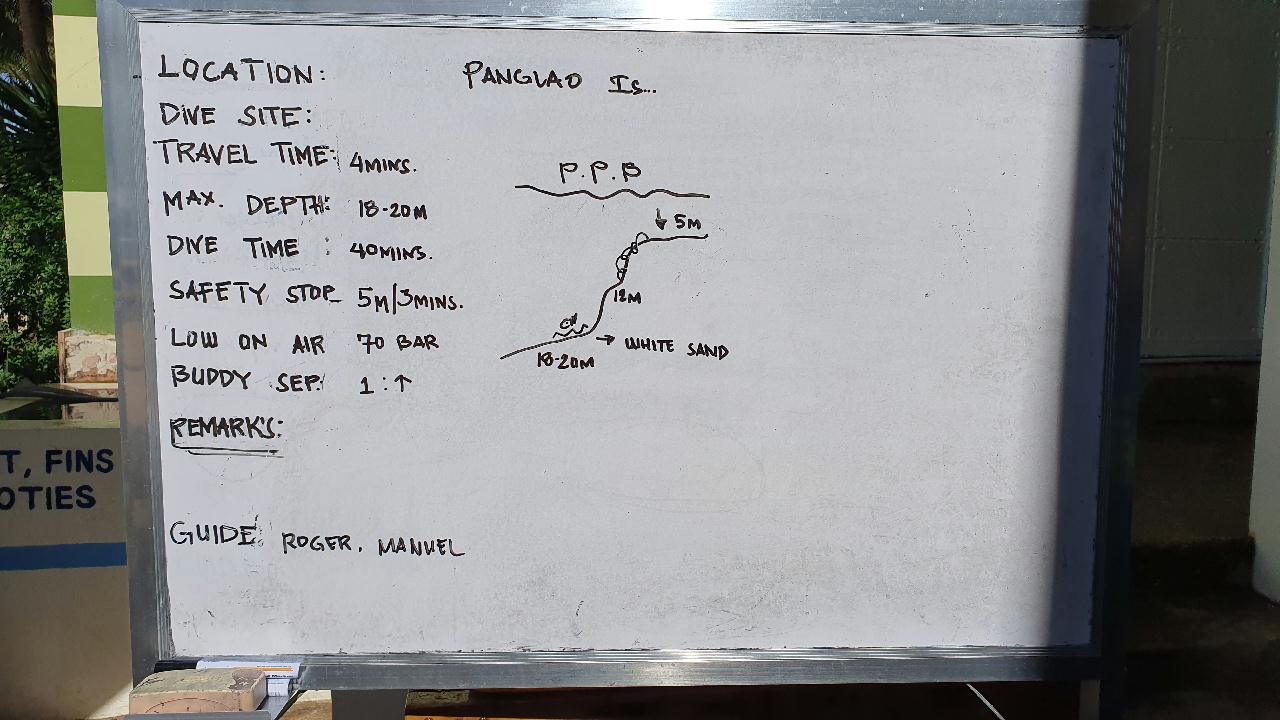 LOCATION: PANGLAO Is...
DIVE SITE:
TRAVEL TIME: 4MINS.
MAX. DEPTH: 18-20M
DIVE TIME : 40MINS.
SAFETY STOP 5M/3MINS.
LOW ON AIR 70 BAR
BUDDY SEP: 1:↑
REMARK'S:
GUIDE: ROGER, MANUEL
P.P.B
↓ 5M
12M
→ WHITE SAND
18-20M
T, FINS
OTIES